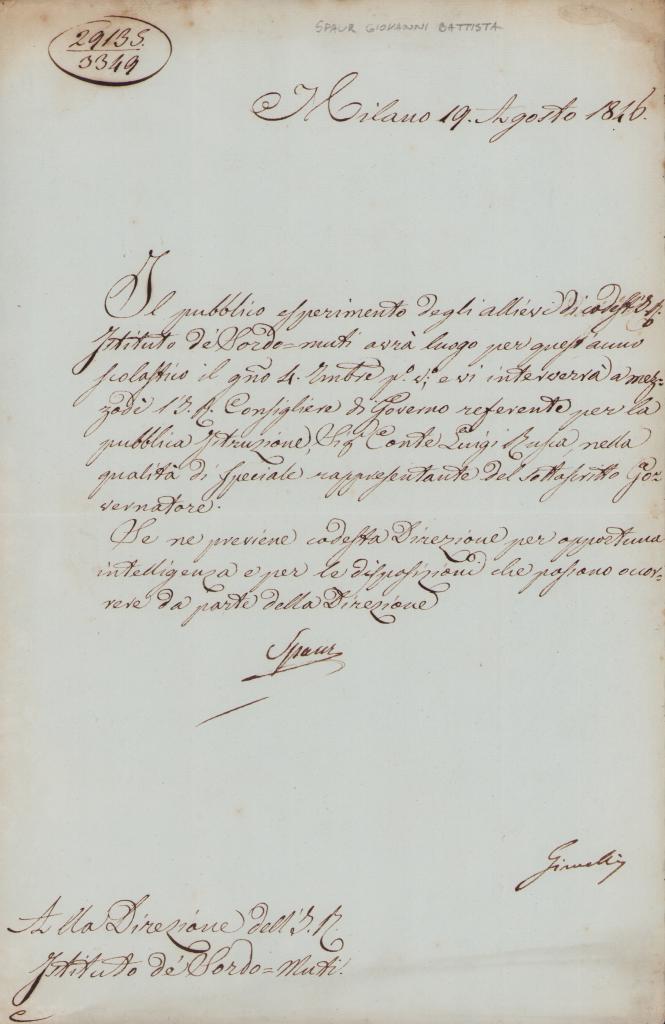 29135.
3349
SPAUR GIOVANNI BATTISTA
Milano 19. Agosto 1846.
Il pubblico esperimento degli allievi di codesto I. R.
Istituto de' Sordo=muti avrà luogo per quest'anno
scolastico il gño 4. 7mbre p.º v.º e vi interverrà a mez-
zodì l'I. R. Consigliere di Governo referente per la
pubblica Istruzione, Sigr Conte Luigi , nella
qualità di speciale rappresentante del sottoscritto Go=
vernatore.
Se ne previene codesta Direzione per opportuna
intelligenza e per le disposizioni che possono occor-
rere da parte della Direzione
Spaur
Alla Direzione dell'I. R.
Istituto de' Sordo=Muti.